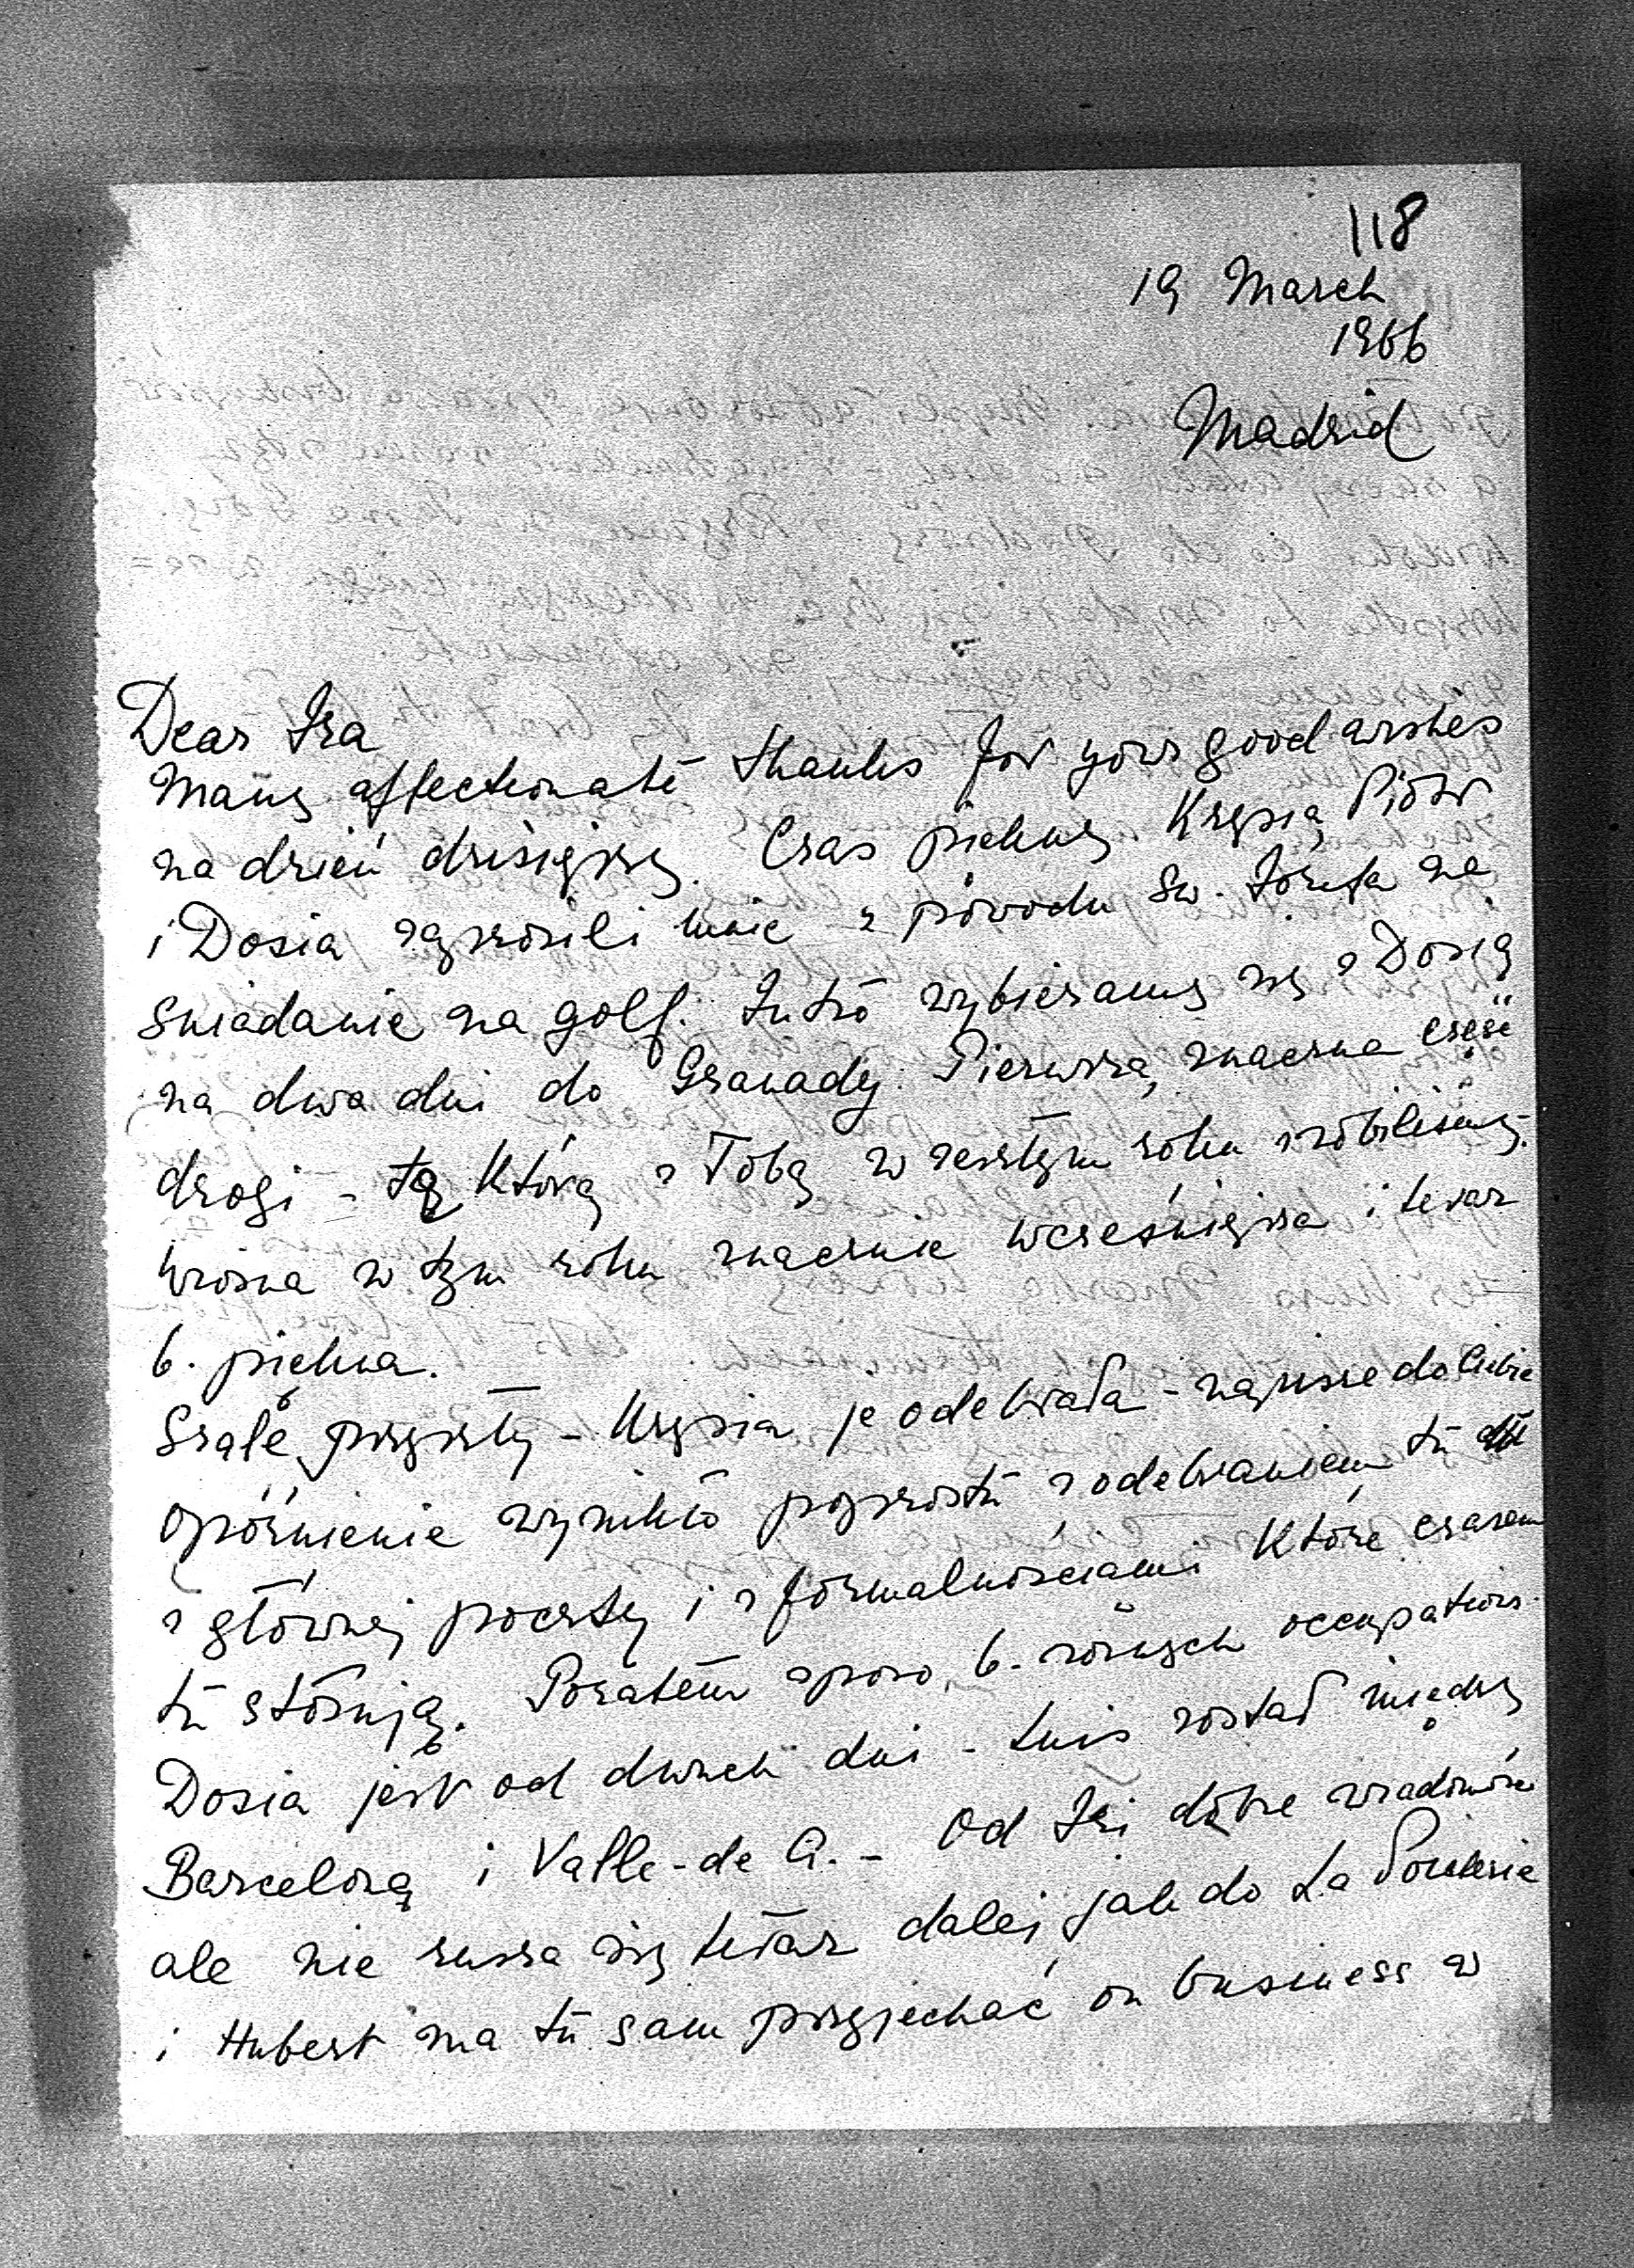 118
19 March
1966
Madrid
Dear Ira
Many affectionate thanks for your good wishes
na dzień dzisiejszy. Czas piękny Krysia, Piotr
i Dosia zaprosili mnie z powodu Św. Józefa na
śniadanie na golf. Jutro wybieramy się z Dosią
na dwa dni do Granady. Pierwszą, znaczna część
drogi – tę którą z Tobą w zeszłym roku zrobiliśmy.
Wiosna w tym roku znacznie wcześniejsza i teraz
b. piękna.
Szale przyszły – Krysia je odebrała – napisze do Ciebie
opóźnienie wynikło poprostu z odebraniem tu
z głównej poczty i z formalnościami które czasem
tu stosują. Pozatem sporo b. różnych occupations.
Dosia jest od dwuch dni – Luis został między
Barceloną i Valle-de A. – Od Isi dobre wiadomości
ale nie rusza się teraz dalej jak do La
i Hubert ma tu sam przyjechać on business w